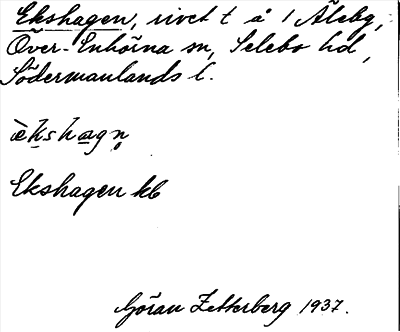 Ekshagen, rivet t å 1 Åleby,
Över-Enhörna sn, Selebo hd,
Södermanlands l.
ækshagn̥
Ekshagen kb
Göran Zetterberg 1937.